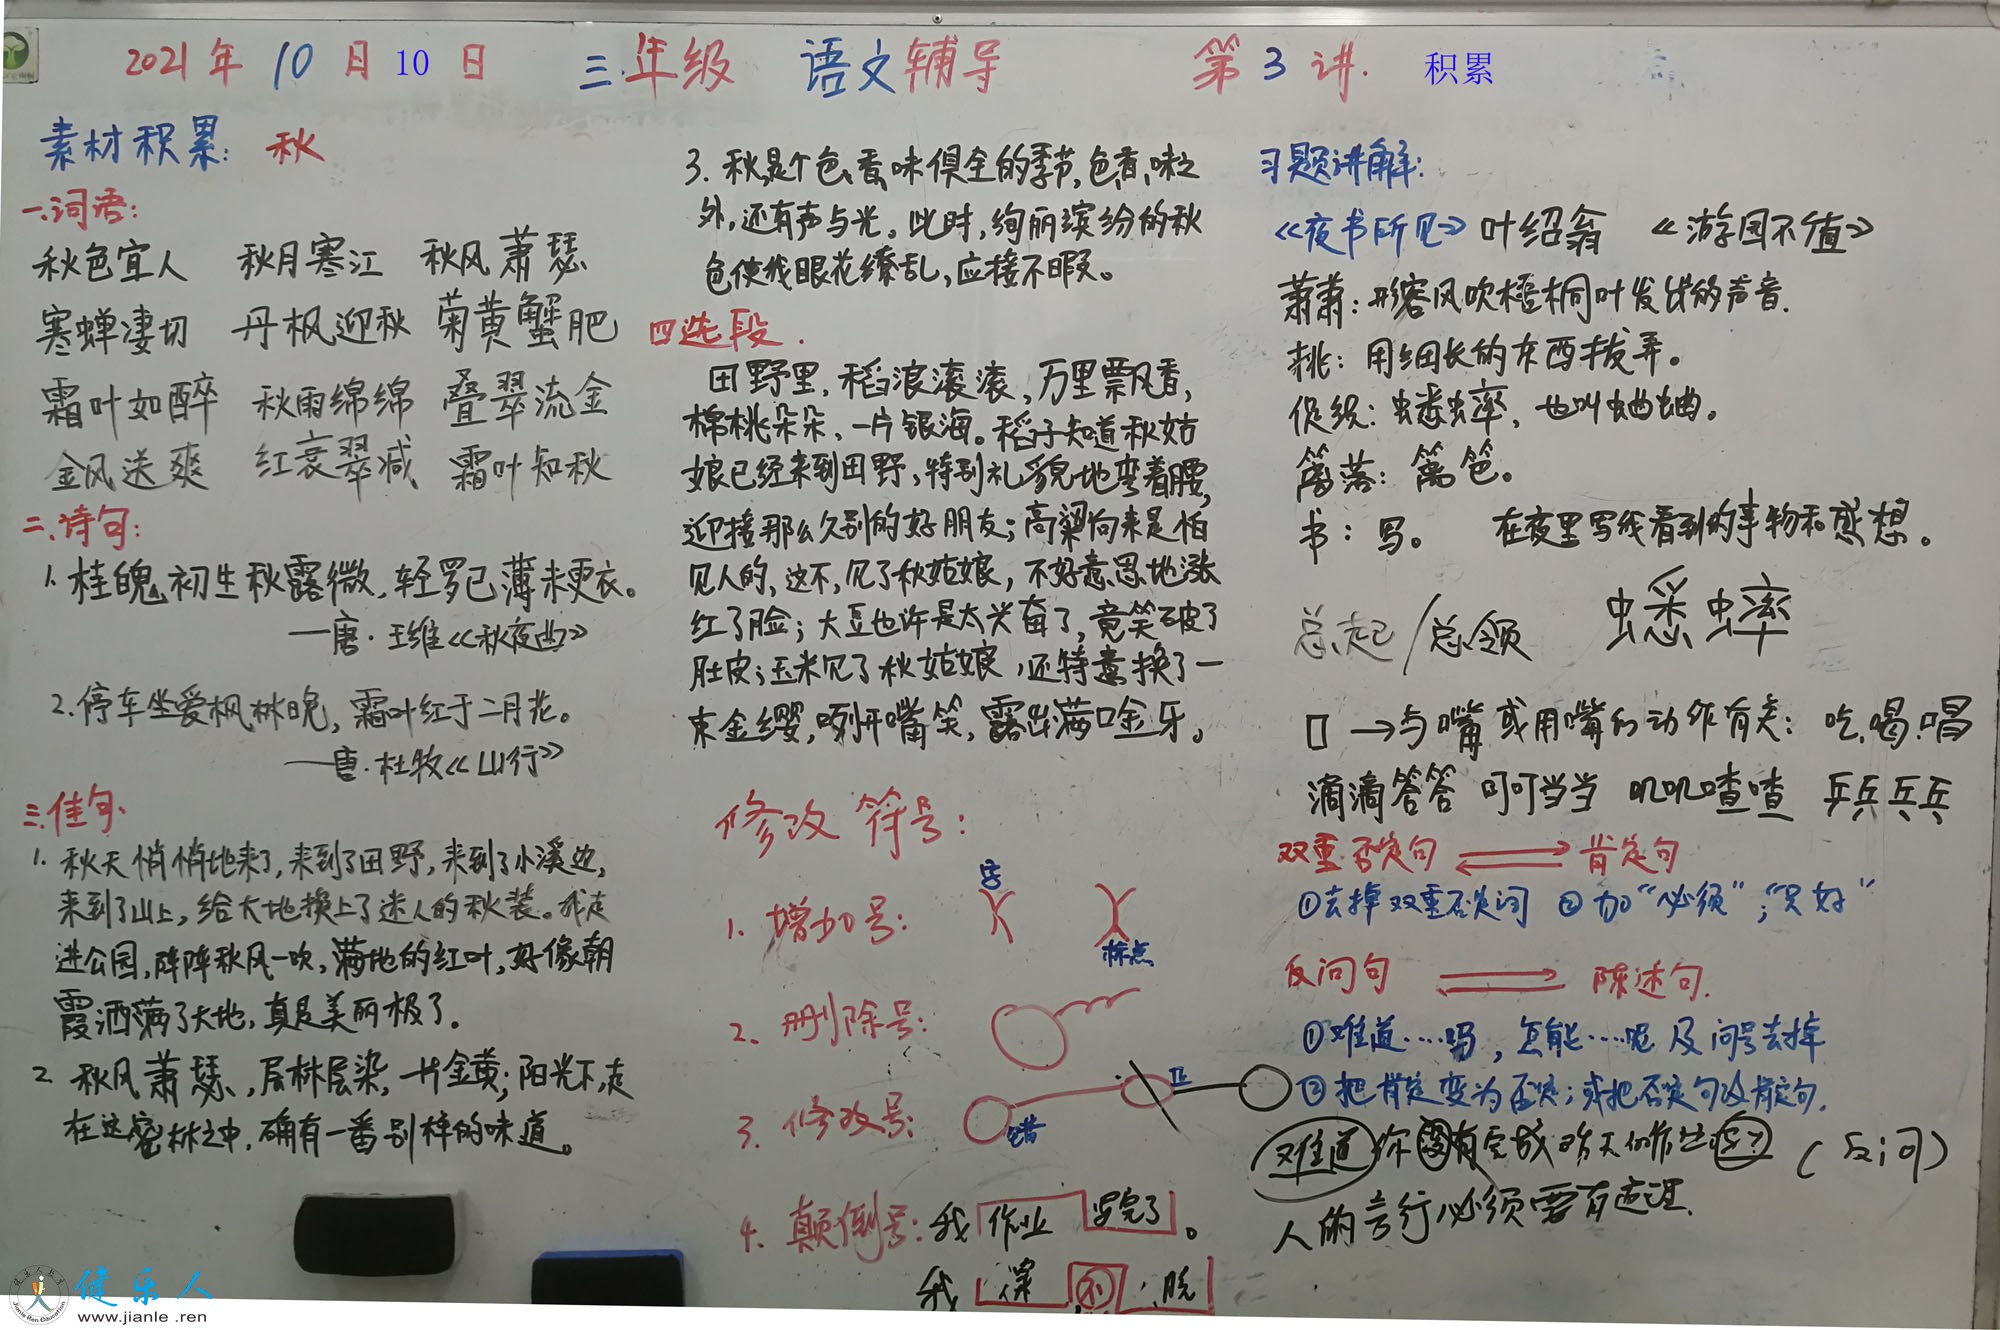 2021年 10月10日 三年级 语文辅导 第3讲. 积累
素材积累: 秋
一.词语:
秋色宜人 秋月寒江 秋风萧瑟
寒蝉凄切 丹枫迎秋 菊黄蟹肥
霜叶如醉 秋雨绵绵 叠翠流金
金风送爽 红衰翠减 霜叶知秋
二.诗句:
1.桂魄初生秋露微,轻罗已薄未更衣。
——唐·王维《秋夜曲》
2.停车坐爱枫林晚,霜叶红于二月花。
——唐·杜牧《山行》
三.佳句.
1. 秋天悄悄地来了,来到了田野,来到了小溪边,
来到了山上,给大地换上了迷人的秋装。我走
进公园,阵阵秋风一吹,满地的红叶,好像朝
霞洒满了大地,真是美丽极了。
2. 秋风萧瑟,层林层染,一片金黄;阳光下,走
在这密林之中,确有一番别样的味道。
3. 秋是个色、香、味俱全的季节,色、香、味之
外,还有声与光。此时,绚丽缤纷的秋
色使我眼花缭乱,应接不暇。
四选段.
田野里,稻浪滚滚,万里飘香,
棉桃朵朵,一片银海。稻子知道秋姑
娘已经来到田野,特别礼貌地弯着腰,
迎接那么久别的好朋友;高粱向来是怕
见人的,这不,见了秋姑娘,不好意思地涨
红了脸;大豆也许是太兴奋了,竟笑破了
肚皮;玉米见了秋姑娘,还特意换了一
束金缨,咧开嘴笑,露出满口金牙。
修改符号:
1. 增加号: 字 标点
2. 删除号:
3. 修改号: 错 正
4. 颠倒号: 我作业写完了。
我 深 不 脱
习题讲解:
《夜书所见》叶绍翁 《游园不值》
萧萧:形容风吹梧桐叶发出的声音.
挑:用细长的东西拨弄。
促织:蟋蟀,也叫蛐蛐。
篱落:篱笆。
书:写。 在夜里写我看到的事物和感想。
总起/总领 蟋蟀
口→与嘴或用嘴的动作有关:吃.喝.唱
滴滴答答 叮叮当当 叽叽喳喳 乒乒乓乓
双重否定句 肯定句
①去掉双重否定词 ②加“必须”;“只好”
反问句 陈述句.
①难道……吗,怎能……呢 及问号去掉
②把肯定变为否定;或把否定句改肯定句.
难道你没有完成昨天的作业吗? (反问)
人的言行必须要有道理.
健乐人
www.jianle.ren